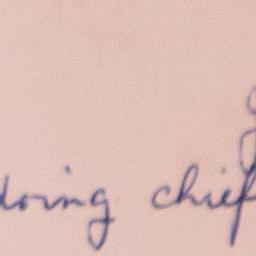 doing chief